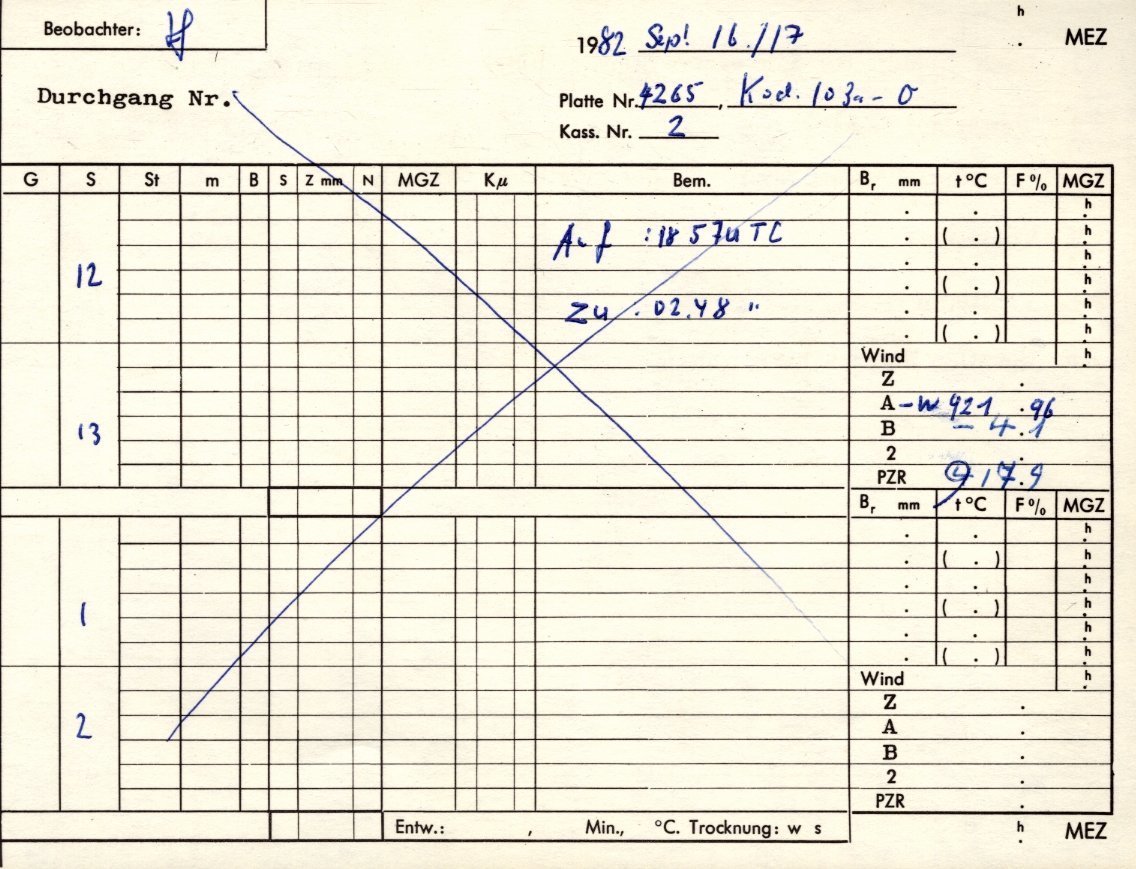 Beobachter:
h
1982 Sept 16./17 . MEZ
Durchgang Nr.
Platte Nr. 4265, Kod. 103a-O
Kass. Nr. 2
G S St m B S Z mm N MGZ Kμ Bem. Br mm t °C F % MGZ
. . h
Auf : 18 57 UTC . ( . ) h
. . h
12 . ( . ) h
Zu : 02.48 " . . h
. ( . ) h
Wind h
Z .
A -W 921 .96
13 B - 4.1
2 .
PZR 917.9
Br mm t °C F % MGZ
. . h
. ( . ) h
. . h
1 . ( . ) h
. . h
. ( . ) h
Wind h
Z .
2 A .
B .
2 .
PZR .
Entw.: , Min., °C. Trocknung: w s
h
. MEZ